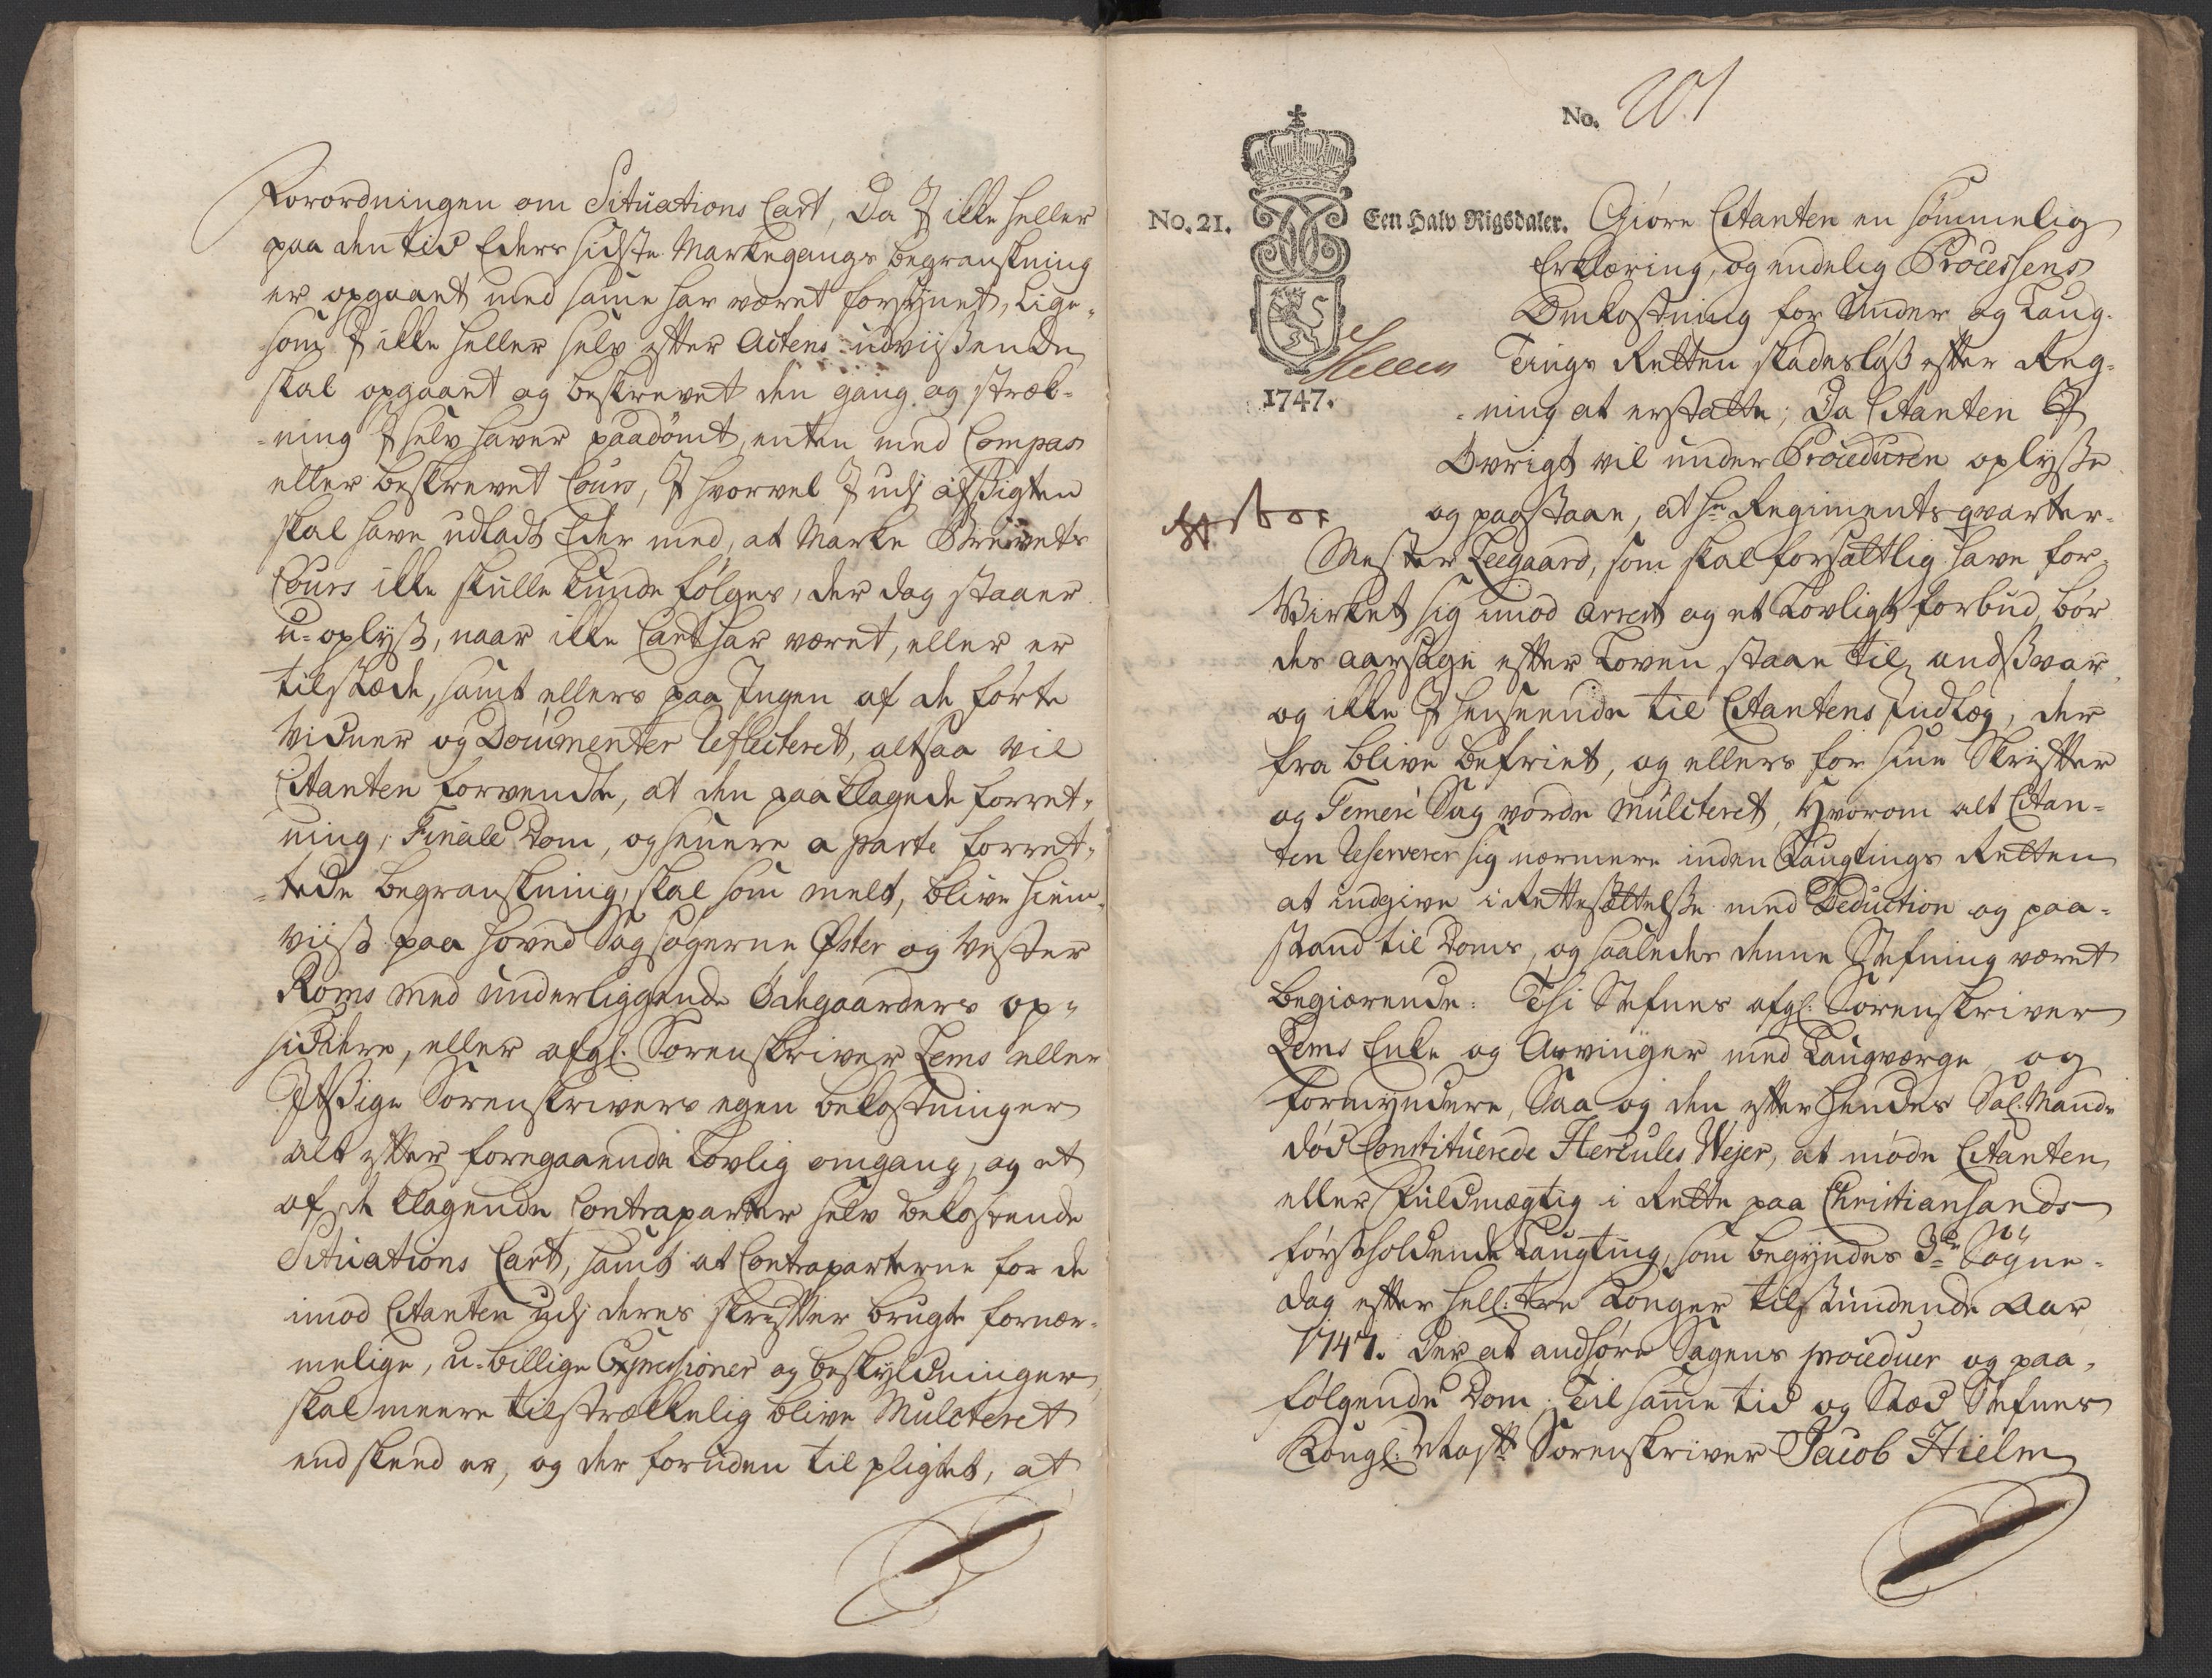 Forordningen om Situations Cart, Da I ikke heller
paa den tid Eders sidste Markegangs begranskning
er opgaaet med same har været forsynet, lige-
som I ikke heller selv efter Actens udviisende
skal opgaaet og beskrevet den gang og stræk-
-ning I selv haver paadömt, enten med Compas
eller beskrevet Cours, I hvorvel I udj afsigten
skal have udladt Eder med, at Marke Brevets
Cours ikke skulle kunde fölges, der dog staaer
u-oplyst, naar ikke Cart har været, eller er
tilstæde, samt ellers paa Ingen af de förte
Vidner og Documenter Reflecteret, altsaa vil
Citanten forvendte, at den paaklagede forret-
ning, Finale Dom, og senere a parte forret-
-tede begranskning, skal som melt, blive hiem-
viist paa hoved Sagsögerne Öster og Vester
Roms med underliggende Ödegaarders op-
siddere, eller afgl. Sorenskriver Lems eller
Itzige Sorenskrivers egen bekostninger
alt efter foregaaende Lovlig omgang, og et
af de klagende Contraparter selv bekostende
Situations Cart, samt at Contraparterne for de
imod Citanten udj deres skrifter brugte fornær-
melige, u-billige Expressioner og beskyldninger
skal meere tilstrækkelig blive Mulcteret
end skeed er, og der foruden tilpligtet, at
No. 201
No. 21. Een Halv Rigsdaler. Giöre Citanten en sömmelig
Erklæring, og endelig Processens
Omkostning for Under og Laug-
Tings Retten skadeslös efter Reg-
1747. -ning at erstatte; Da Citanten I
Övrigt vil under Proceduren oplyse
og paastaae, at Hr Regimentsqvarter-
Mester Leegaard, som skal forsættlig have for-
Virket sig imod Arrest og et Lovligt forbud, bör
des aarsage efter Loven staae til andsvar,
og ikke I henseende til Citantens Indlæg, der
fra blive befriet, og ellers for sine Skrifter
og Temere Sag vorde Mulcteret, Hvorom alt Citan-
ten Reserverer sig nærmere inden Laugtings Retten
at indgive i Rettesættelse med Deduction og paa-
stand til Doms, og saaledes denne Stefning været
begiærende: Thi Stefnes afgl. Sorenskriver
Lems Enke og Arvinger med Laugværge og
formyndere, Saa og den efter hendes Sal. Mands
död Constituerede Hercules Wejer, at möde Citanten
eller Fuldmægtig i Rette paa Christiansands
förstholdende Laugting, som begyndes 3de Sögne-
dag efter hell. tre Konger tilstundende Aar
1747. Der at anhöre Sagens proceduer og paa-
fölgende Dom; Til same tid og Stæd Stefnes
Kongl. Maysts Sorenskriver Jacob Hielm